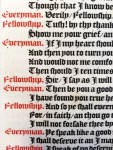 Though that I know be
Everyman. Verily, Fellowship,
Fellowship. Tush! by thy thank
Show me your grief, an
Everyman. If I my heart should
And then you to turn you
And would not me comfor
Then should I ten times
Fellowship. Sir, I say as I will d
Everyman. Then be you a good
I have found you true he
Fellowship. And so ye shall everm
For, in faith, an thou go
I will not forsake thee by
Everyman. Ye speak like a good f
I shall deserve it, an I may
Fellowship. I speak of no deservin